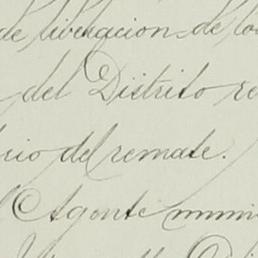 de liberacion de lo
del Distrito re
cio del remate.
Agente muni